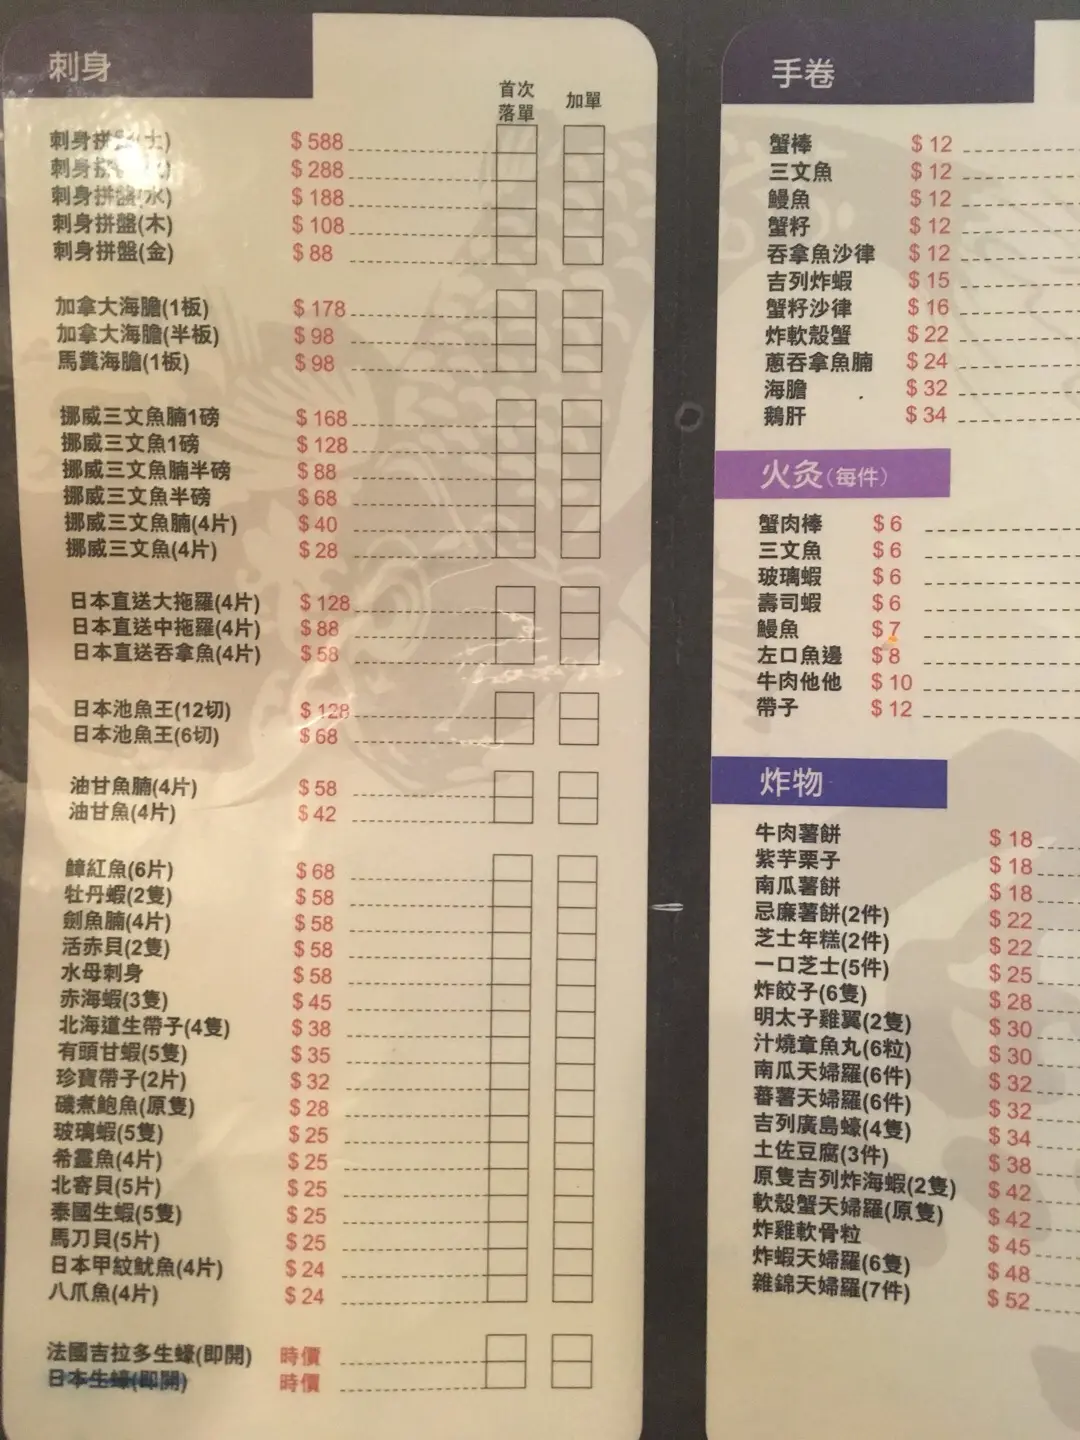 刺身
首次
落單
加單
刺身拼盤(土) $588
刺身 $288
刺身拼盤(水) $188
刺身拼盤(木) $108
刺身拼盤(金) $88
加拿大海膽(1板) $178
加拿大海膽(半板) $98
馬糞海膽(1板) $98
挪威三文魚腩1磅 $168
挪威三文魚1磅 $128
挪威三文魚腩半磅 $88
挪威三文魚半磅 $68
挪威三文魚腩(4片) $40
挪威三文魚(4片) $28
日本直送大拖羅(4片) $128
日本直送中拖羅(4片) $88
日本直送吞拿魚(4片) $58
日本池魚王(12切) $128
日本池魚王(6切) $68
油甘魚腩(4片) $58
油甘魚(4片) $42
鱆紅魚(6片) $68
牡丹蝦(2隻) $58
劍魚腩(4片) $58
活赤貝(2隻) $58
水母刺身 $58
赤海蝦(3隻) $45
北海道生帶子(4隻) $38
有頭甘蝦(5隻) $35
珍寶帶子(2片) $32
磯煮鮑魚(原隻) $28
玻璃蝦(5隻) $25
希靈魚(4片) $25
北寄貝(5片) $25
泰國生蝦(5隻) $25
馬刀貝(5片) $25
日本甲紋魷魚(4片) $24
八爪魚(4片) $24
法國吉拉多生蠔(即開) 時價
日本生蠔(即開) 時價
手卷
蟹棒 $12
三文魚 $12
鰻魚 $12
蟹籽 $12
吞拿魚沙律 $12
吉列炸蝦 $15
蟹籽沙律 $16
炸軟殼蟹 $22
蔥吞拿魚腩 $24
海膽 $32
鵝肝 $34
火炙(每件)
蟹肉棒 $6
三文魚 $6
玻璃蝦 $6
壽司蝦 $6
鰻魚 $7
左口魚邊 $8
牛肉他他 $10
帶子 $12
炸物
牛肉薯餅 $18
紫芋栗子 $18
南瓜薯餅 $18
忌廉薯餅(2件) $22
芝士年糕(2件) $22
一口芝士(5件) $25
炸餃子(6隻) $28
明太子雞翼(2隻) $30
汁燒章魚丸(6粒) $30
南瓜天婦羅(6件) $32
蕃薯天婦羅(6件) $32
吉列廣島蠔(4隻) $34
土佐豆腐(3件) $38
原隻吉列炸海蝦(2隻) $42
軟殼蟹天婦羅(原隻) $42
炸雞軟骨粒 $45
炸蝦天婦羅(6隻) $48
雜錦天婦羅(7件) $52